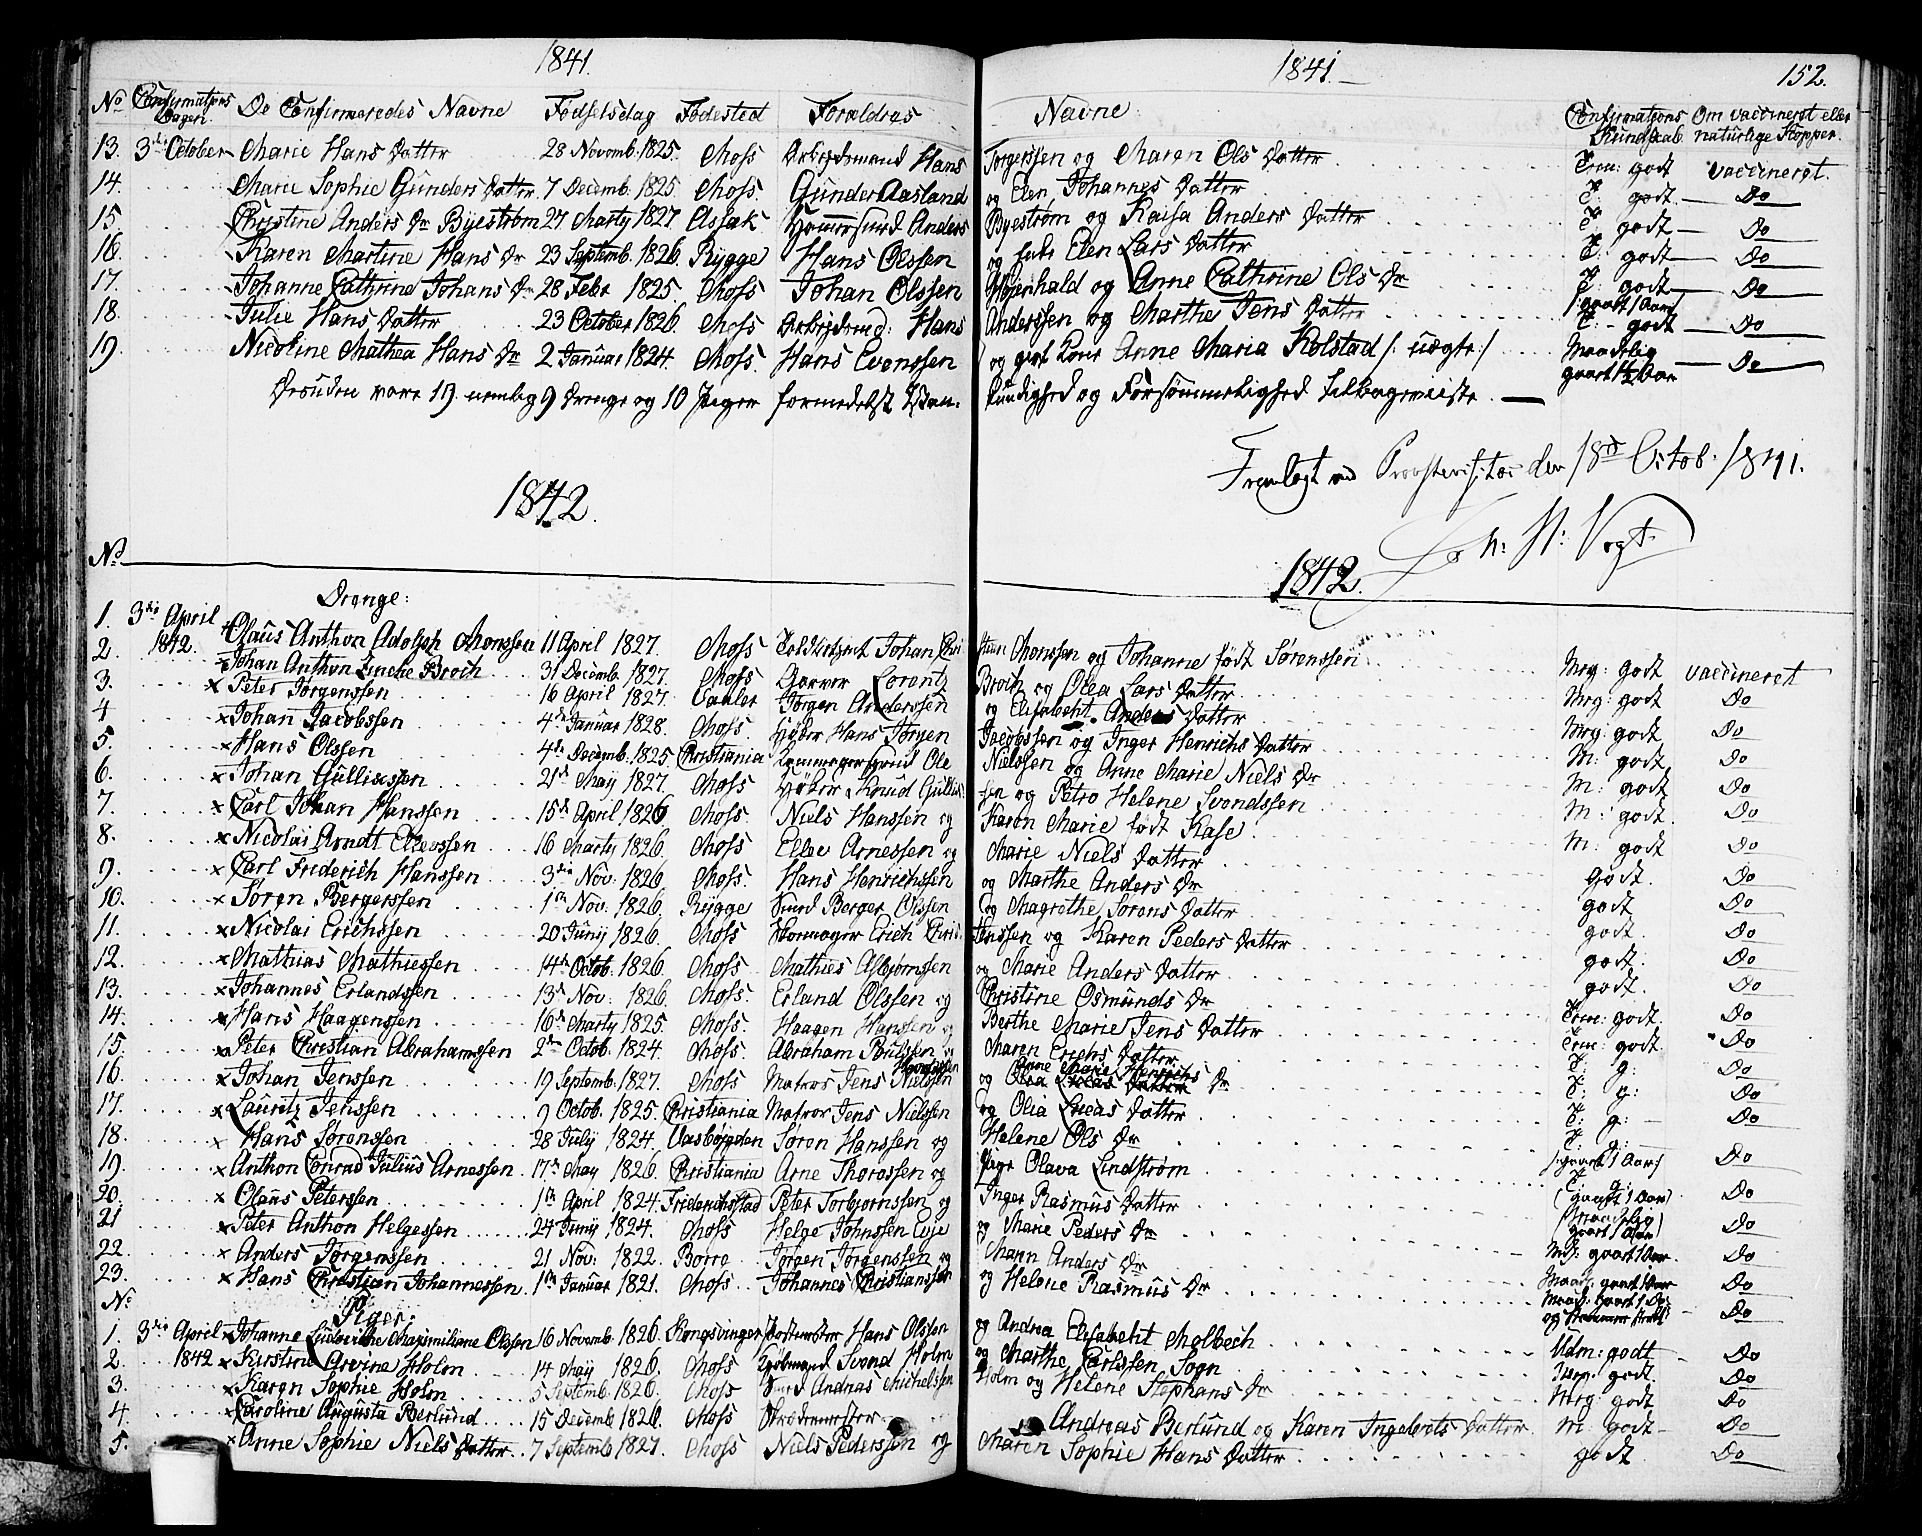 1841. 1841. 152.
No Confirmations Dagen. De Confirmeredes Navne Fødselsdag Fødested Forældres Navne Confirmations Kundskab Om vaccineret eller naturlige Kopper.
13. 3die October Marie Hans Datter 28 Novemb. 1825. Moss Arbejdsmand Hans Torgerssen og Maren Ols Datter Tem: godt vaccineret.
14. Marie Sophie Gunders Datter 7 Decemb. 1825. Moss. Gunder Aasland og Elen Johannes Datter T. godt. Do
15. Christine Anders Dr Byeström 27 Marty 1827. Anders Byestrøm og Kaisa Anders Datter T. godt Do
16. Karen Martine Hans Dr 23 Septemb. 1826. Rygge Hans Olssen og Elen Lars Datter T. godt Do
17. Johanne Cathrine Johans Dr 28 Febr 1825. Moss Johan Olssen og Anne Cathrine Ols Dr T. godt Do
18. Julie Hans Datter 23 October 1826. Moss Arbejdsmd: Hans Anderssen og Marthe Jens Datter T. godt Do
19. Nicoline Mathea Hans Dr 2 Januar 1824. Moss. Hans Evenssen og Anne Maria Kolstad /: uægte :/ Maadelig gaaet 1½ Aar Do
Desuden vare 19. nemlig 9 Drenge og 10 Piger formedelst Uvankundighed og Forsømmelighed tilbageviiste.
Fremlagt ved den 18d Octob. 1841.
1842. Vogt
No 1842.
Drenge:
1. 3die April 1842. Claus Anthon Adolph Monssen 11 April 1827. Moss Johan Christian Monssen og Johanne født Sørenssen Mrg: godt vaccineret
2. Johan Anthon Linche Broch 31 Decemb. 1827. Moss Garver Lorentz Broch og Olea Lars Datter Mrg: godt Do
3. Peter Jørgenssen 16 April 1827. Vaaler Jørgen Anderssen og Elisabeht Anders Datter Mrg: godt Do
4 Johan Jacobssen 4de Januar 1828. Moss. Høker Hans Jørgen Jacobssen og Inger Henrichs Datter M: godt Do
5. Hans Olssen 4de Decemb. 1825. Christiania Ole Nielssen og Anne Marie Niels Dr M: godt Do
6. Johan Gullixssen 21de May 1827. Moss Høker Knud Gullixssen og Petro Helene Svendssen M: godt. Do
7. Carl Johan Hanssen 15de April 1826 Moss. Niels Hanssen og Karen Marie født Kase. M: godt Do
8. Nicolai Arndt Ellevssen 16 Marty 1826. Moss Ellev Arnessen og Marie Niels Datter godt. Do
9. Carl Friderich Hanssen 3die Nov: 1826 Moss. Hans Henrichssen og Marthe Anders Dr godt Do
10. Søren Bergerssen 1ste Nov. 1826. Rygge Smed Berger Olssen og Magrethe Sørens Datter godt Do
11. Nicolai Erichssen 20 Juny 1826. Moss Skomager Erich Christenssen og Karen Peders Datter godt. Do
12. Mathias Mathiessen 14de Octob. 1826. Moss Mathies Asbjørnssen og Marie Anders Datter godt. Do
13. Johannes Erlandssen 13de Nov: 1826. Moss. Erland Olssen og Christine Osmunds Dr Tem: godt. Do
14. Hans Haagenssen 16de Marty 1825. Moss. Haagen Hanssen og Berthe Marie Jens Datter Tem: godt. Do
15. Peter Christian Abrahamssen 2den Octob. 1824. Moss. Abraham Poulssen og Maren Erichs Datter T: g: Do
16. Johan Jenssen 19 Septemb. 1827. Moss Matros Jens Nielssen og Anne Marie Henrichs Dr T: g: Do
17. Lauritz Jenssen 9 Octob. 1825. Christiania Matros Jens Nielssen og Olia Lucas Datter T: g: Do
18. Hans Sørenssen 28 July 1824. Søren Hanssen og Helene Ols Dr T. g: /:gaaet 1 Aar:/ Do
19. Anthon Conrad Julius Arnessen 17de May 1826. Christiania Arne Thorassen og Pige Olava Lindstrøm T. g: (gaaet 1 Aar) Do
20. Olaus Peterssen 1ste April 1824. Friderichsstad Peter Torbjørnssen og Inger Rasmus Datter /Maadelig gaaet 1 Aar/ Do
21 Peter Anthon Helgessen 24 Juny 1824. Moss Helge Johnssen Eeje og Marie Peders Dr gaaet 1 Aar Do
22. Anders Jørgenssen 21 Nov: 1822. Borre Jørgen Jørgenssen og Mann Anders Dr Maad: gaaet 1 Aar Do
23. Hans Christian Johannessen 1ste Januar 1821. Moss. Johannes Christianssen og Helene Rasmus Dr Maad: gaaet 1 Do Do
No Piger.
1. 3die April 1842 Johanne Ludoviche Maximiliane Olssen 16 Novemb. 1826. Kongsvinger Postmester Hans Olssen og Andrea Elisabeht Molbech Udm: godt Do
2. Kirstine Arvine Holm 14 May 1826. Moss Kjøbmand Svend Holm og Marthe Carlssen Sogn Mrg. godt. Do
3. Karen Sophie Holm 5 Septemb. 1826. Moss Smed Andreas Michelssen Holm og Helene Stephans Dr Mrg: godt Do
4. Caroline Augusta Berlund 15 Decemb 1826. Moss Skrædermester Andreas Berlund og Karen Ingebrets Datter M: godt Do
5. Anne Sophie Niels Datter 7 Septemb 1827. Moss Niels Pederssen og Maren Sophie Hans Datter godt Do